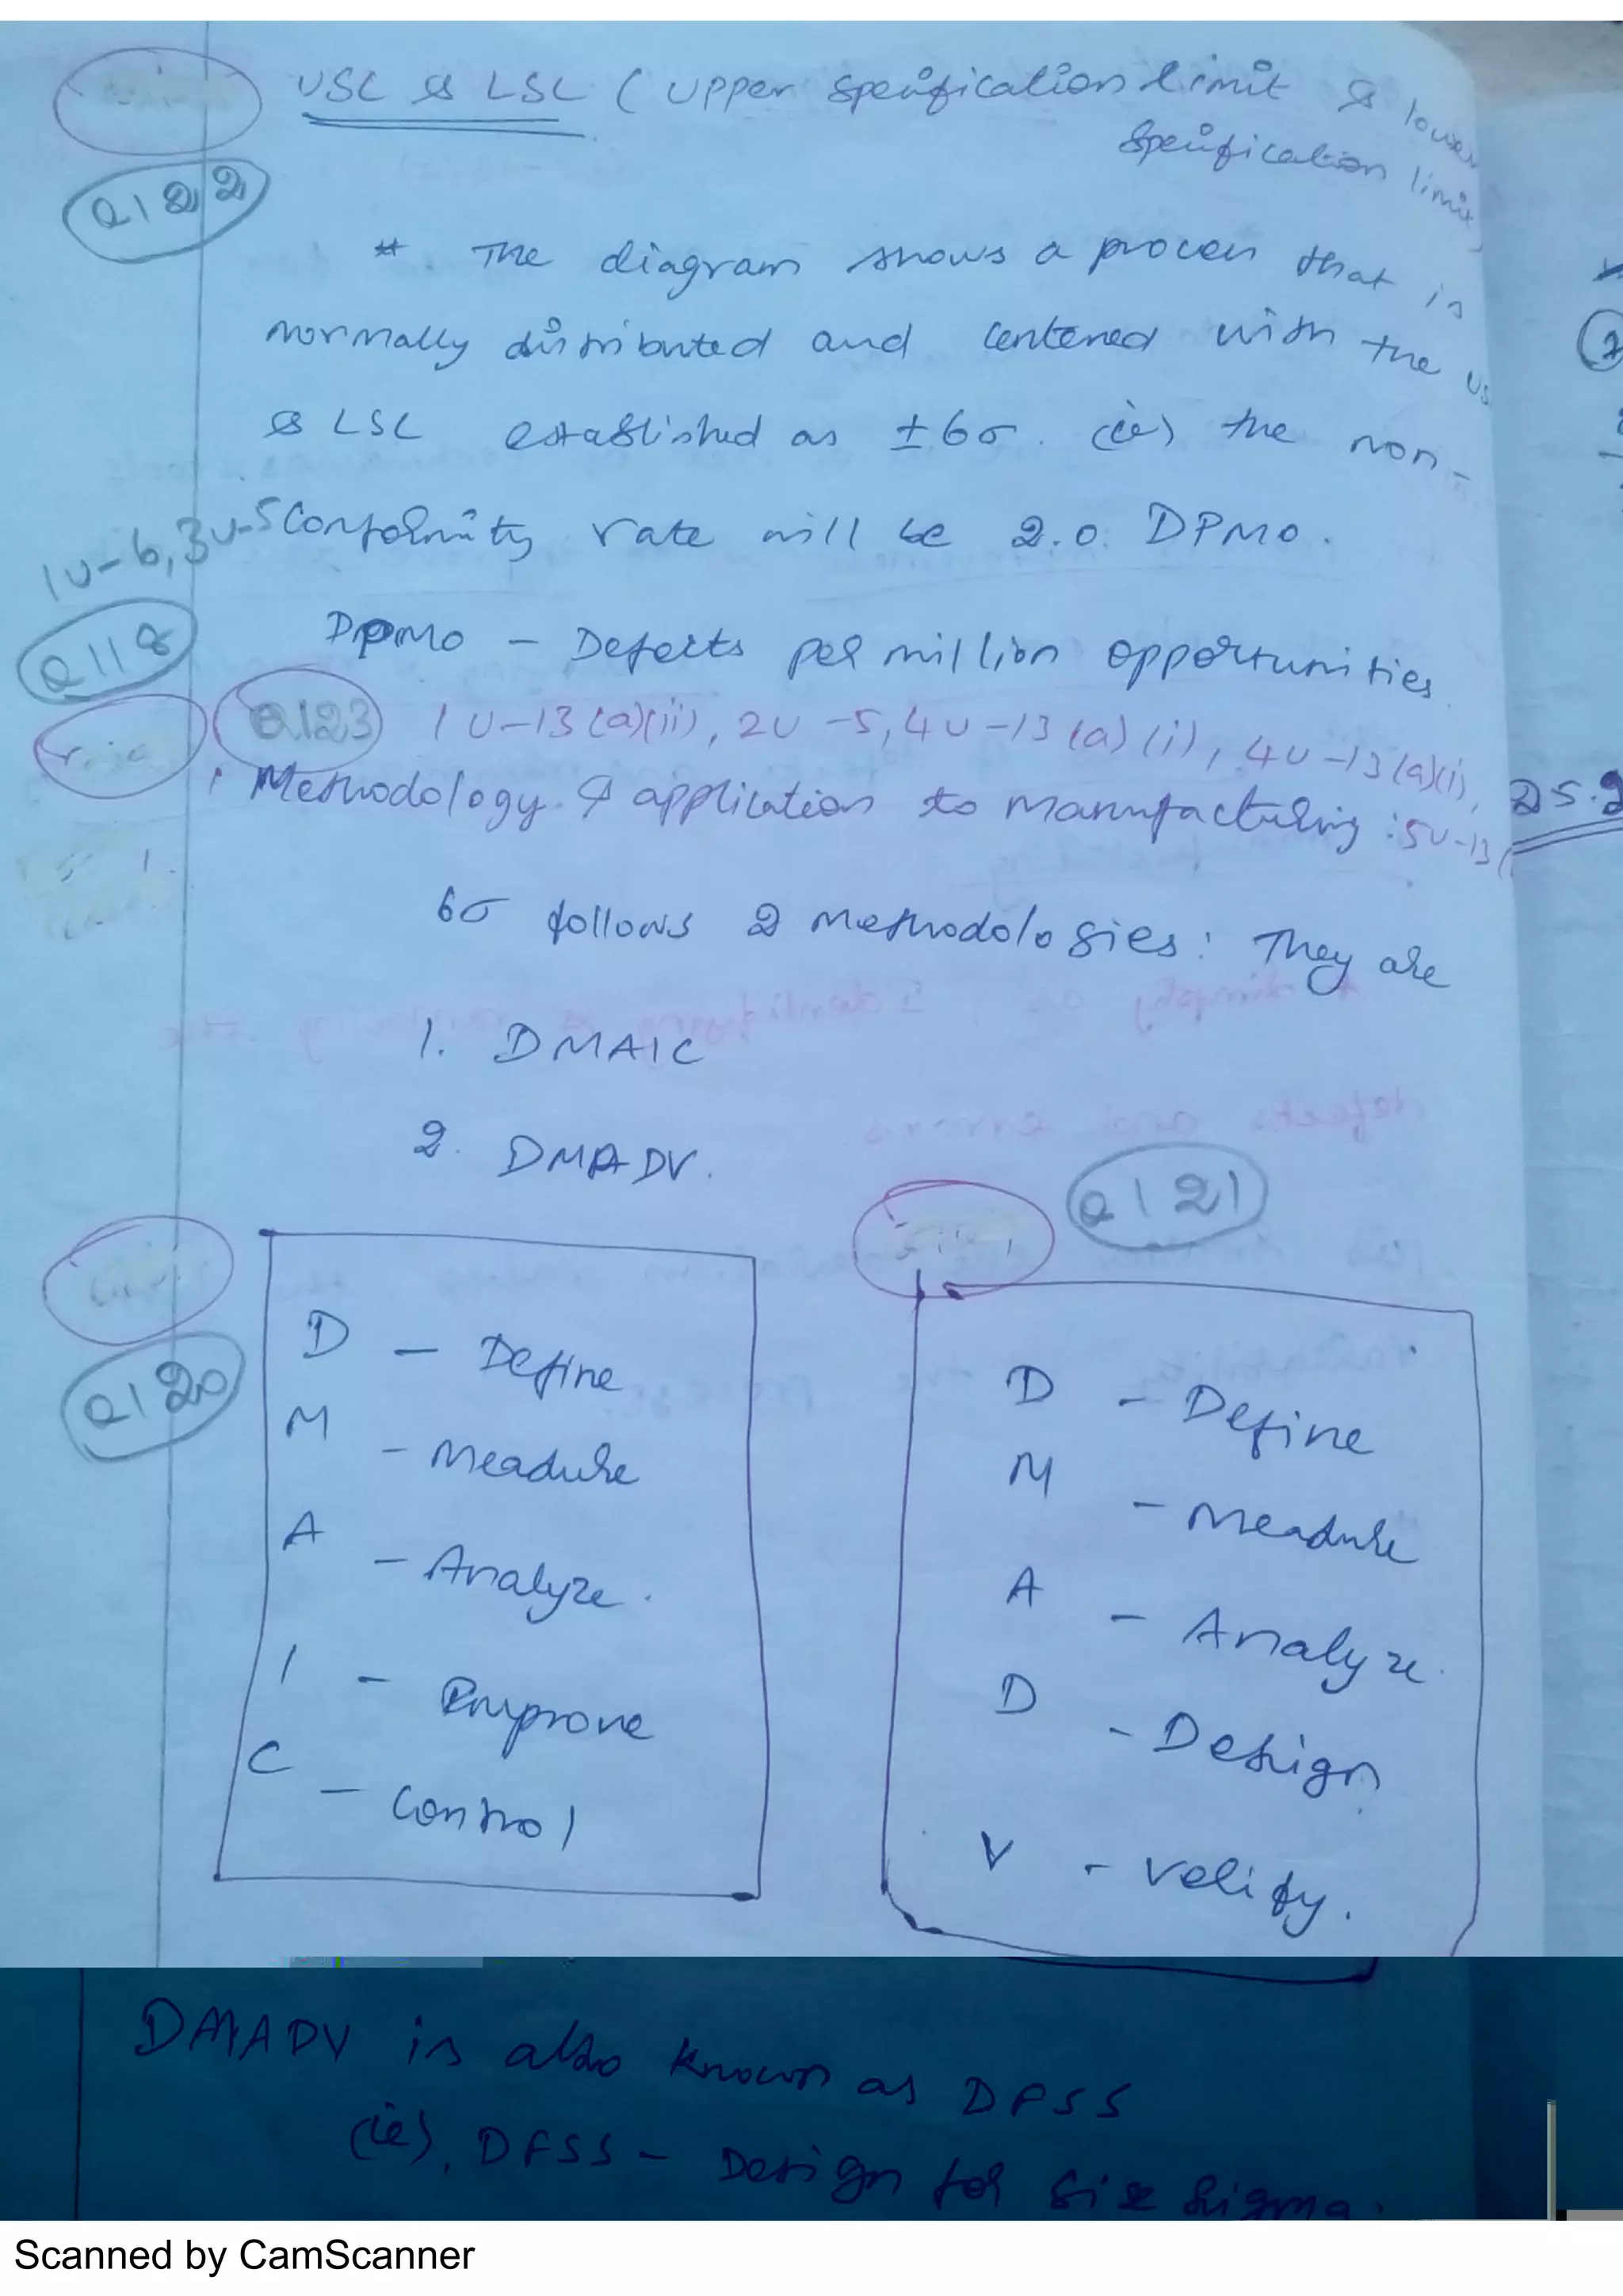 USL & LSL ( Upper Specification limit & lower
Specification limit)
Q122
* The diagram shows a process that is
normally distributed and centered with the US
& LSL established as ±6σ. (ie) the non-
Conformity rate will be 2.0. DPMO.
1U-6, 3U-5
DPMO - Defects per million opportunities.
Q118
Q123 1U-13(a)(ii), 2U-5, 4U-13(a)(i), 4U-13(a)(i),
Methodology & application to manufacturing : 5U-13(
6σ follows 2 Methodologies: They are
1. DMAIC
2. DMADV.
Q121
Q120
D - Define
M - Measure
A - Analyze.
I - Improve
C - Control
D - Define
M - Measure
A - Analyze.
D - Design
V - Verify.
DMADV is also known as DFSS
(ie). DFSS - Design for Six Sigma.
Scanned by CamScanner